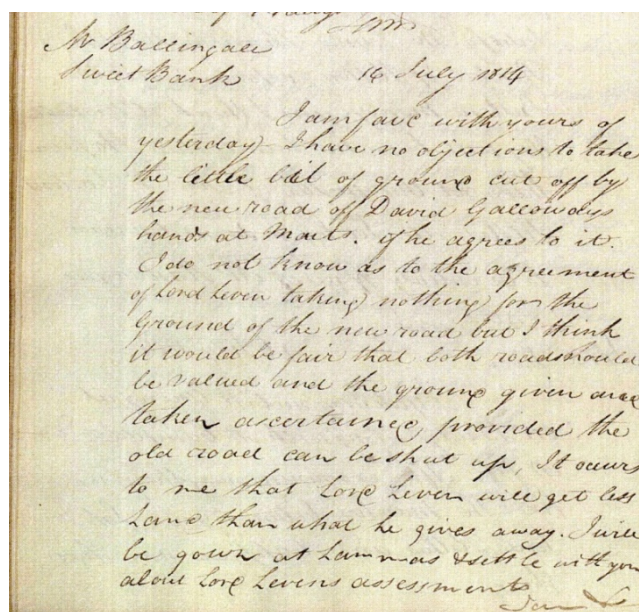 Mr Ballingall
Sweet Bank 16 July 1814
I am favd with yours of
yesterday – I have no objections to take
the little bit of ground cut off by
the new road off David Galloways
hands at Marts. if he agrees to it.
I do not know as to the agreement
of Lord Leven taking nothing for the
Ground of the new road but I think
it would be fair that both roads should
be valued and the ground given and
taken ascertained, provided the
old road can be shut up, It occurs
to me that Lord Leven will get less
Land than what he gives away. I will
be down at Lammas & settle with you
about Lord Levens assessments